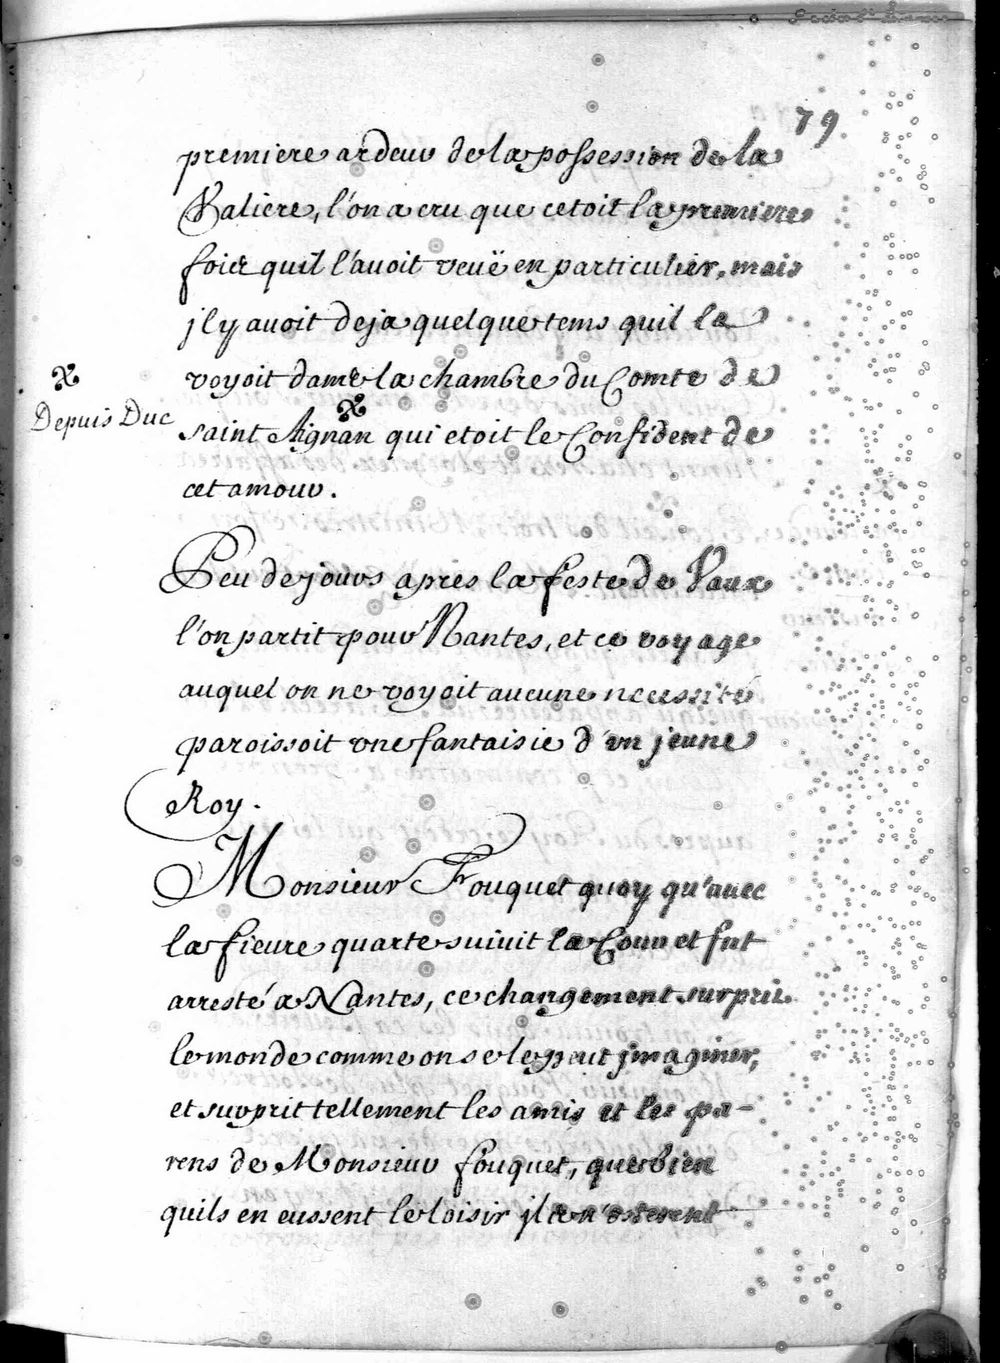 79
premiere ardeur de la possession de la
Valiere, l'on a cru que cetoit la premiere
fois quil l'avoit veuë en particulier, mais
jl y avoit deja quelque tems quil la
voyoit dans la chambre du Comte de
Depuis Duc
saint Aignan qui etoit le Confident de
cet amour.
Peu de jours apres la feste de Vaux
l'on partit pour Nantes, et ce voyage
auquel on ne voyoit aucune necessité
paroissoit vne fantaisie d'un jeune
Roy.
Monsieur Fouquet quoy qu'avec
la fievre quarte suivit la Cour et fut
arresté a Nantes, ce changement surprit
le monde comme on se le peut jmaginer,
et surprit tellement les amis et les pa-
rens de Monsieur fouquet, que bien
quils en eussent le loisir jls n'osterent